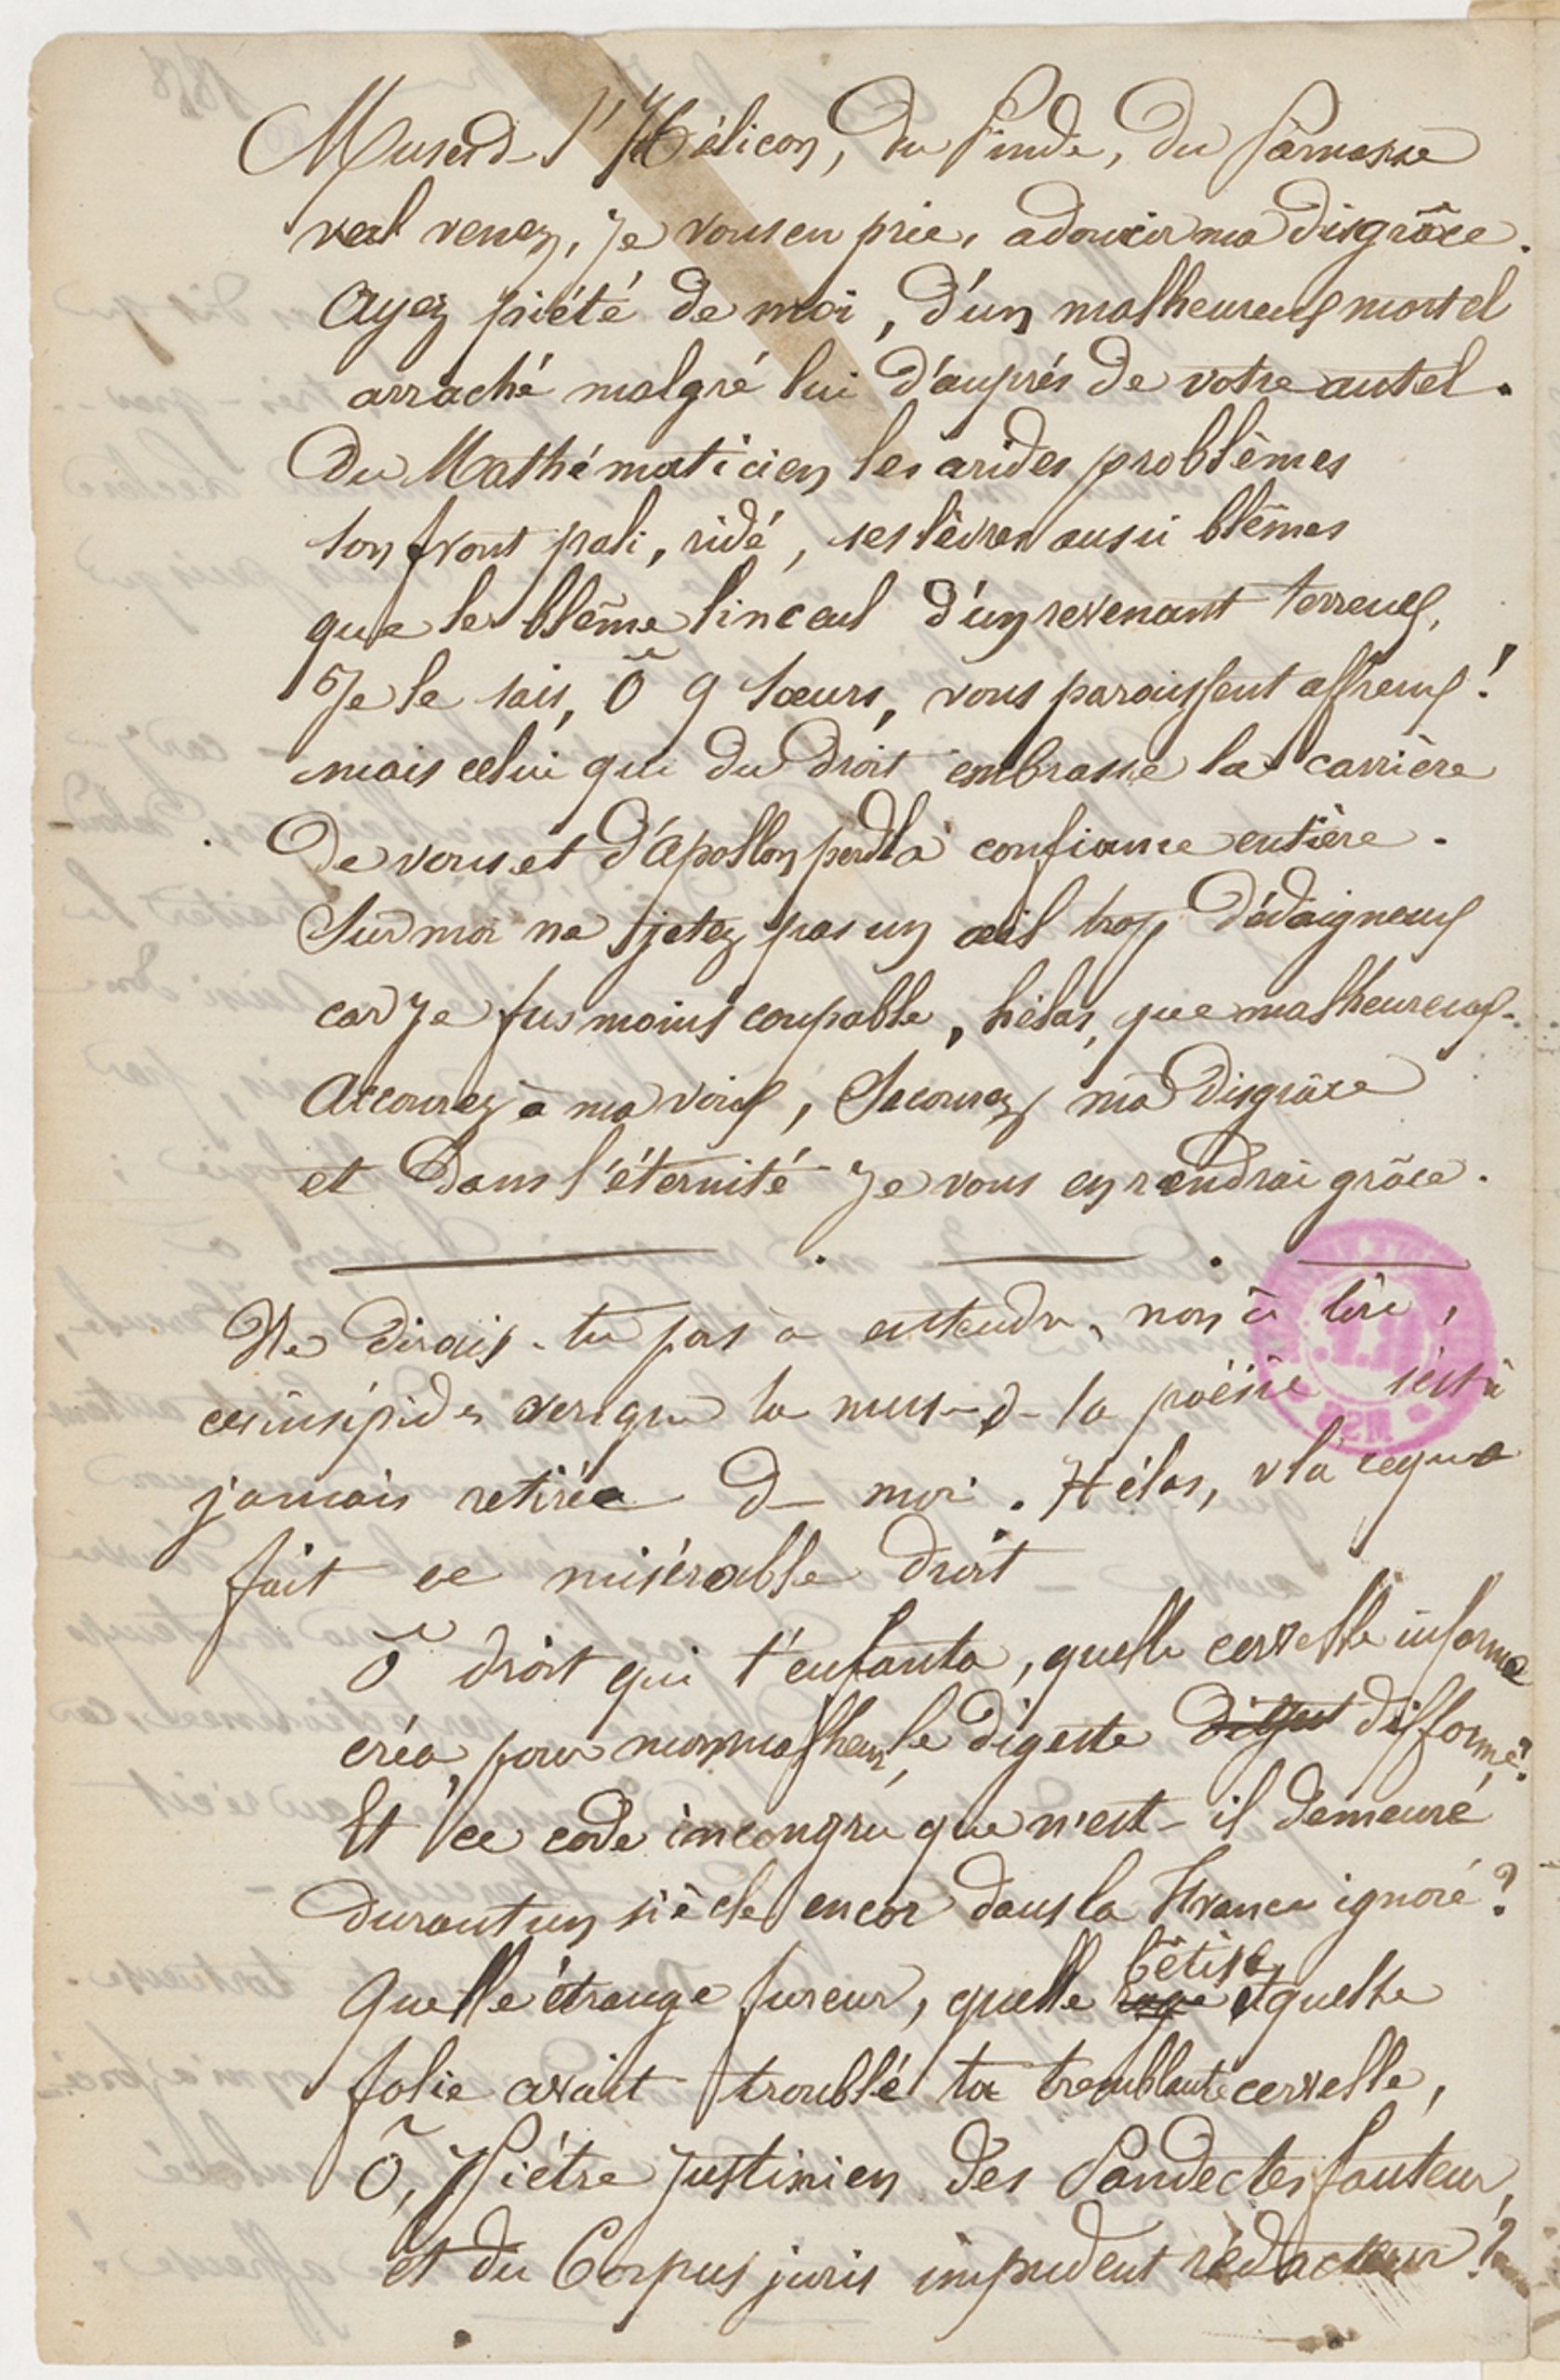 Muse d l'Hélicon, du Pinde, du Parnasse
venez, je vous en prie, adoucir ma disgrâce.
Ayez piété de moi, d'un malheureux mortel
arraché malgré lui d'auprès de votre autel.
Du Mathématicien les arides problèmes
son front pali, ridé, ses lèvres aussi blêmes
que le blême linceul d'un revenant terreux,
Je le sais, Ô 9 soeurs, vous paraissent affreux!
mais celui qui du droit embrasse la carrière
De vous et d'Apollon perd la confiance entière.
Sur moi ne jetez pas un oeil trop dédaigneux
car je fus moins coupable, hélas, que malheureux.
Accourez à ma voix, Secourez ma disgrâce
et dans l'éternité je vous en rendrai grâce.
Ne dirais-tu pas à entendre, non à lire,
ces insipides vers que la muse d la poësie s'est à
jamais retirée d moi. Hélas, v'là ce qu'a
fait ce misérable droit
Ô droit qui t'enfanta, quelle cervelle informe
créa, pour mon malheur, le digeste difforme?
Et ce code incongru que n'est-il demeuré
durant un siècle encor dans la France ignoré?
Quelle étrange fureur, quelle rage bêtise et quelle
folie avait troublé ta tremblante cervelle,
Ô, Piètre Justinien des Pandectes fauteur,
et du Corpus juris impudent rédacteur?